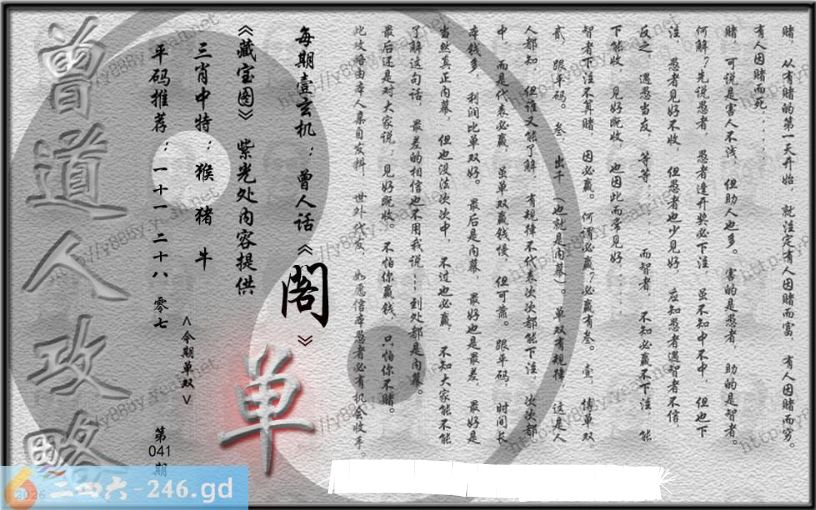 赌，从有赌的第一天开始，就注定有人因赌而富，有人因赌而穷。
有人因赌而死......
赌，可说是害人不浅，但助人也多。害的是愚者，助的是智者。
何解？先说愚者，愚者逢开奖必下注，虽不知中不中，但也下
注，愚者见好不收，但愚者也少见好，应知愚者遇智者不信，
反之，遇愚当友，等等，......而智者，不知必赢不下注，能
下能收，见好既收，也因此而常见好......
智者下注不算赌，因必赢。何谓必赢？必赢有叁。壹，猜单双
贰，跟单码。叁，出千（也就是内幕）。单双有规律，这是人
人都知，但谁又能了解，有规律不代表次次都能下注，次次都
中，而是代表必赢，虽单双赢钱慢，但可靠。跟单码，时间长
本钱多，利润比单双好。最后是内幕，最好也是最差，最好是
当然真正内幕，但也没法次次中，不过也必赢，不知大家能不能
了解这句话，最差的相信也不用我说....到处都是内幕。
最后还是对大家说：见好既收。不怕你赢钱，只怕你不赌。
此攻略由本人亲自发料，世外代发，如愿信本愚者必有机会收手。
每期壹玄机：曾人话《阁》
《藏宝图》紫光处内容提供
三肖中特：猴 猪 牛
平码推荐：一十一 二十八 零七
<今期单双>
单
第
041
期
曾道人攻略
2026
二四六-246.gd